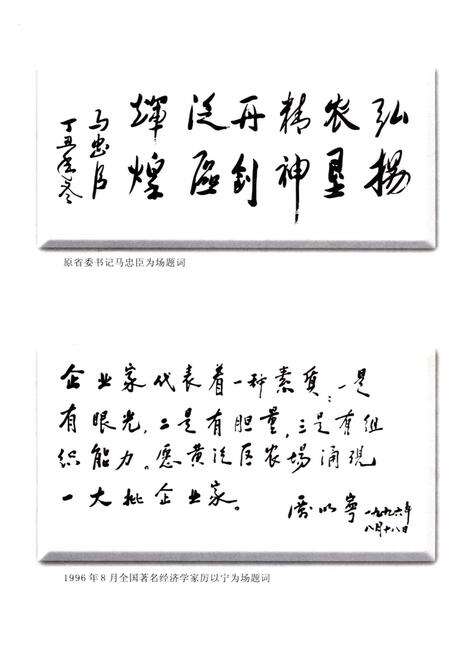 弘揚
农垦
精神
再創
泛區
輝煌
马忠臣
丁丑
原省委书记马忠臣为场题词
企业家代表着一种素質:一是
有眼光,二是有胆量,三是有组
织能力。愿黄泛区农場涌現
一大批企业家。
厲以寧
一九九六年
八月十八日
1996年8月全国著名经济学家厉以宁为场题词